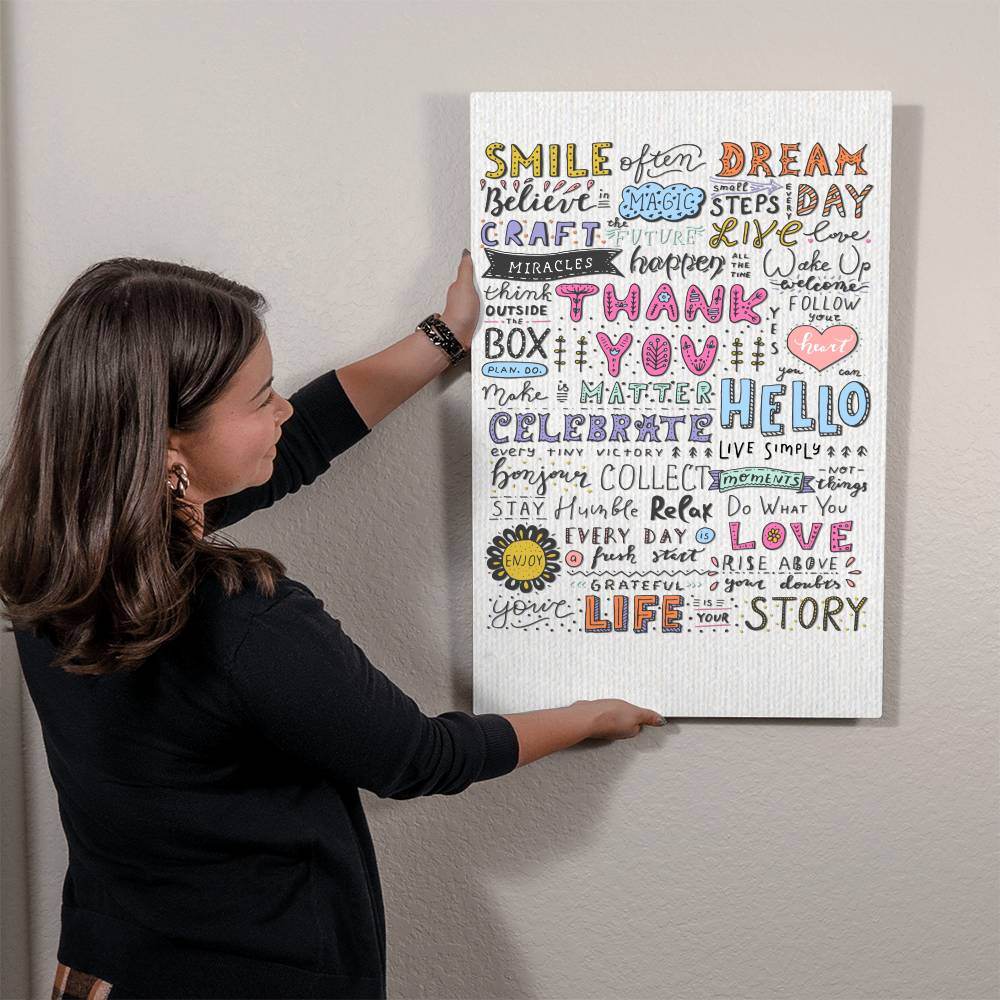 SMILE often DREAM
Believe in MAGIC small STEPS EVERY DAY
CRAFT the FUTURE LIVE love
MIRACLES happen ALL THE TIME Wake Up
welcome
think THANK FOLLOW
OUTSIDE your
THE
BOX YOU YES heart
PLAN. DO. you can
Make is MATTER HELLO
CELEBRATE
every TINY VICTORY LIVE SIMPLY
bonjour COLLECT moments NOT things
STAY Humble Relax Do What You
ENJOY EVERY DAY is LOVE
a fresh start RISE ABOVE
GRATEFUL your doubts
your LIFE IS YOUR STORY